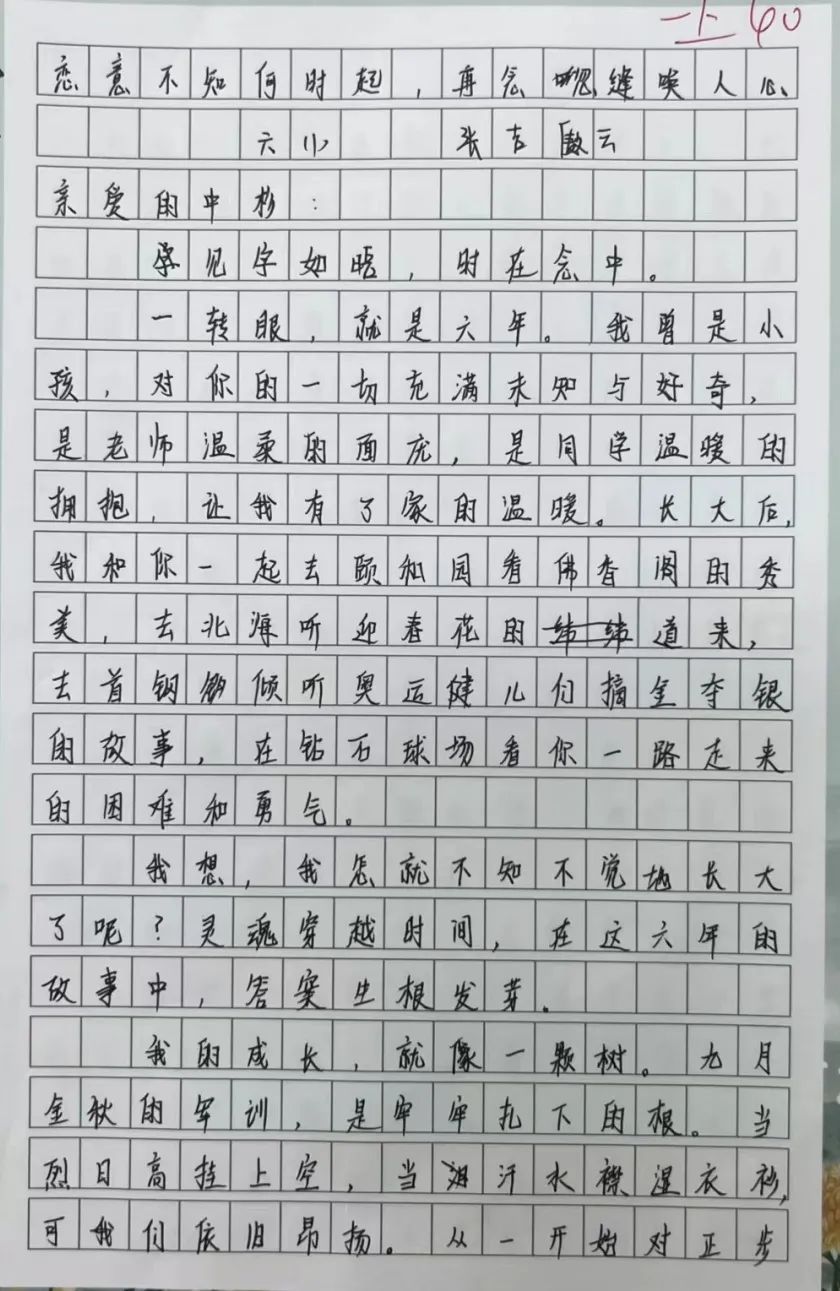 一上 40
恋意不知何时起，再念缝唉人心
六(1) 张吉傲云
亲爱的中杉：
见字如晤，时在念中。
一转眼，就是六年。我曾是小
孩，对你的一切充满未知与好奇，
是老师温柔的面庞，是同学温暖的
拥抱，让我有了家的温暖。长大后，
我和你一起去颐和园看佛香阁的秀
美，去北海听迎春花的娓娓道来，
去首钢倾听奥运健儿们摘金夺银
的故事，在钻石球场看你一路走来
的困难和勇气。
我想，我怎就不知不觉地长大
了呢？灵魂穿越时间，在这六年的
故事中，答案生根发芽。
我的成长，就像一颗树。九月
金秋的军训，是牢牢扎下的根。当
烈日高挂上空，当汗水襟湿衣衫，
可我们依旧昂扬。从一开始对正步